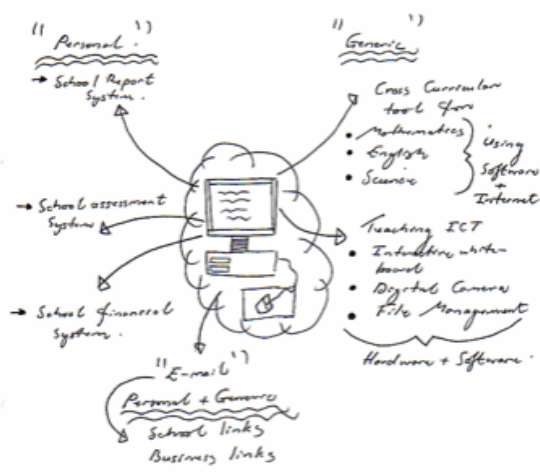 "Personal."
→ School Report
System.
→ School assessment
System
→ School financial
System.
"Generic"
Cross Curricular
tool for
• Mathematics
• English
• Science
Using
Software
+
Internet
Teaching ICT
• Interactive white-
board
• Digital Camera
• File Management
Hardware + Software.
"E-mail"
Personal + Generic
School links
Business links